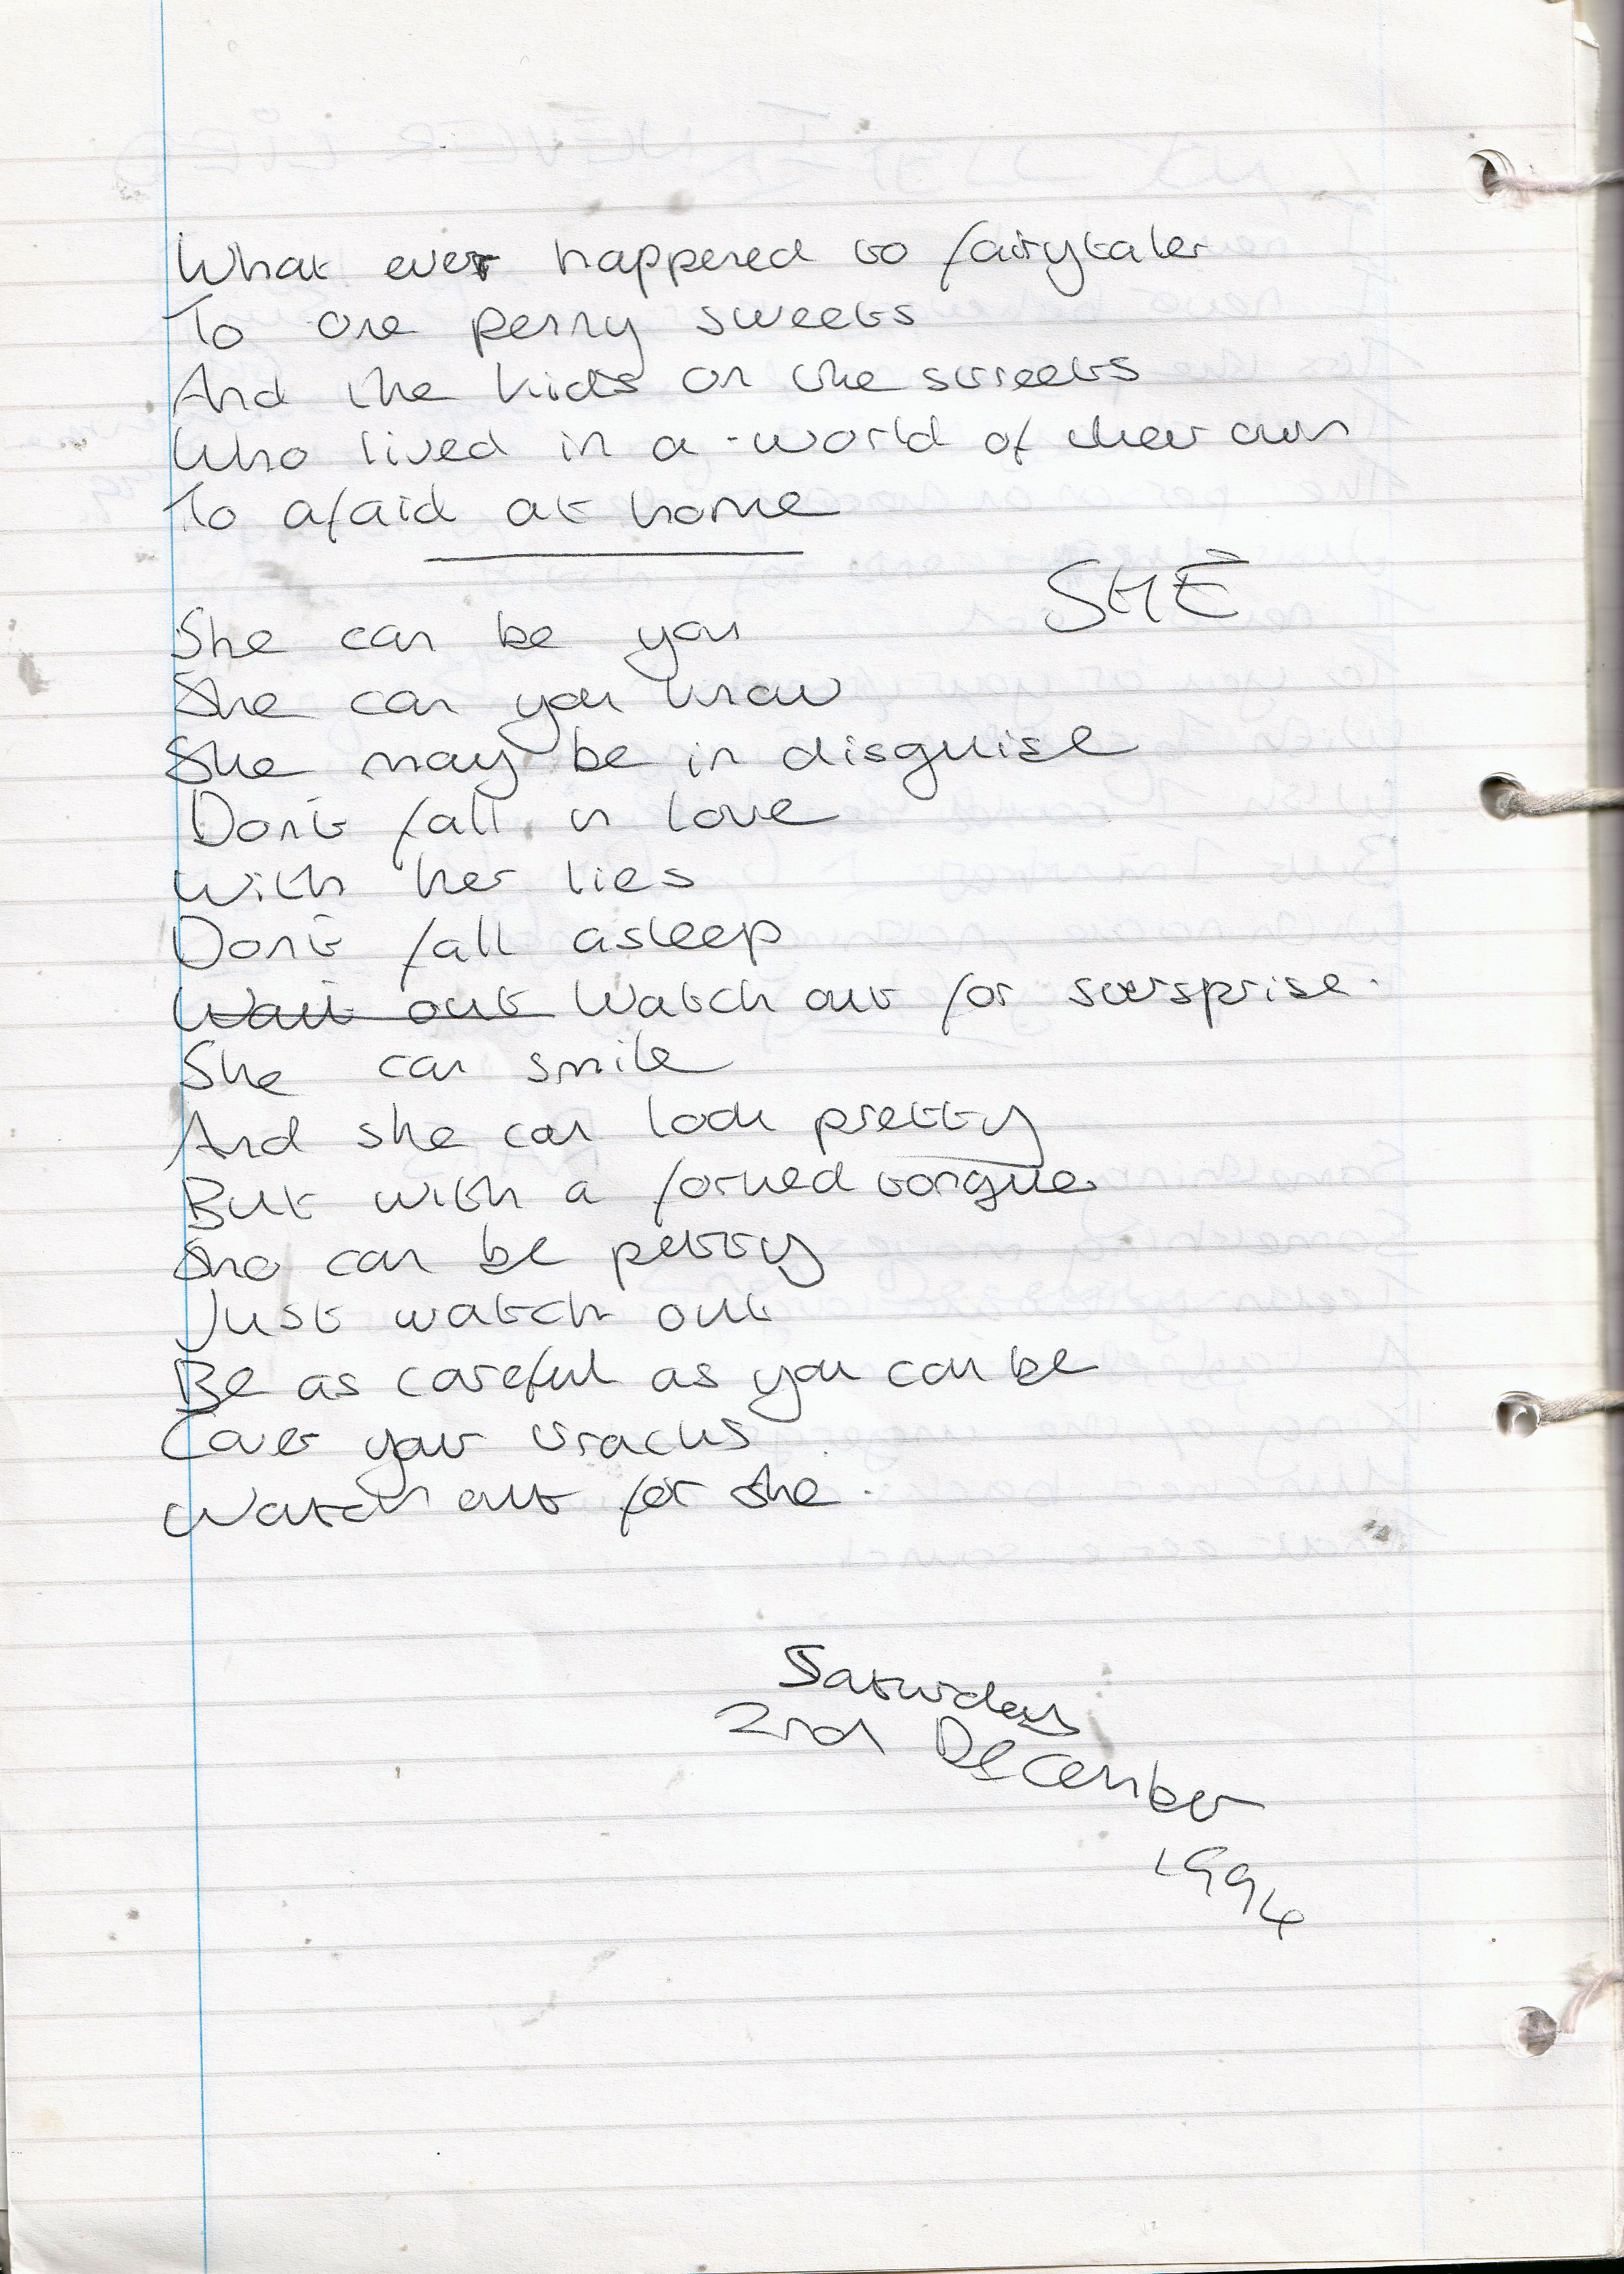 What ever happened to fairytales
To one penny sweets
And the kids on the streets
Who lived in a world of their own
To afaid at home
SHE
She can be you
She can you know
She may be in disguise
Don't fall in love
With her lies
Don't fall asleep
Wait out Watch out for sursprise.
She can smile
And she can look pretty
But with a forked tongue
She can be petty
Just watch out
Be as careful as you can be
Cover your tracks
Watch out for she.
Saturday
2nd December
1994